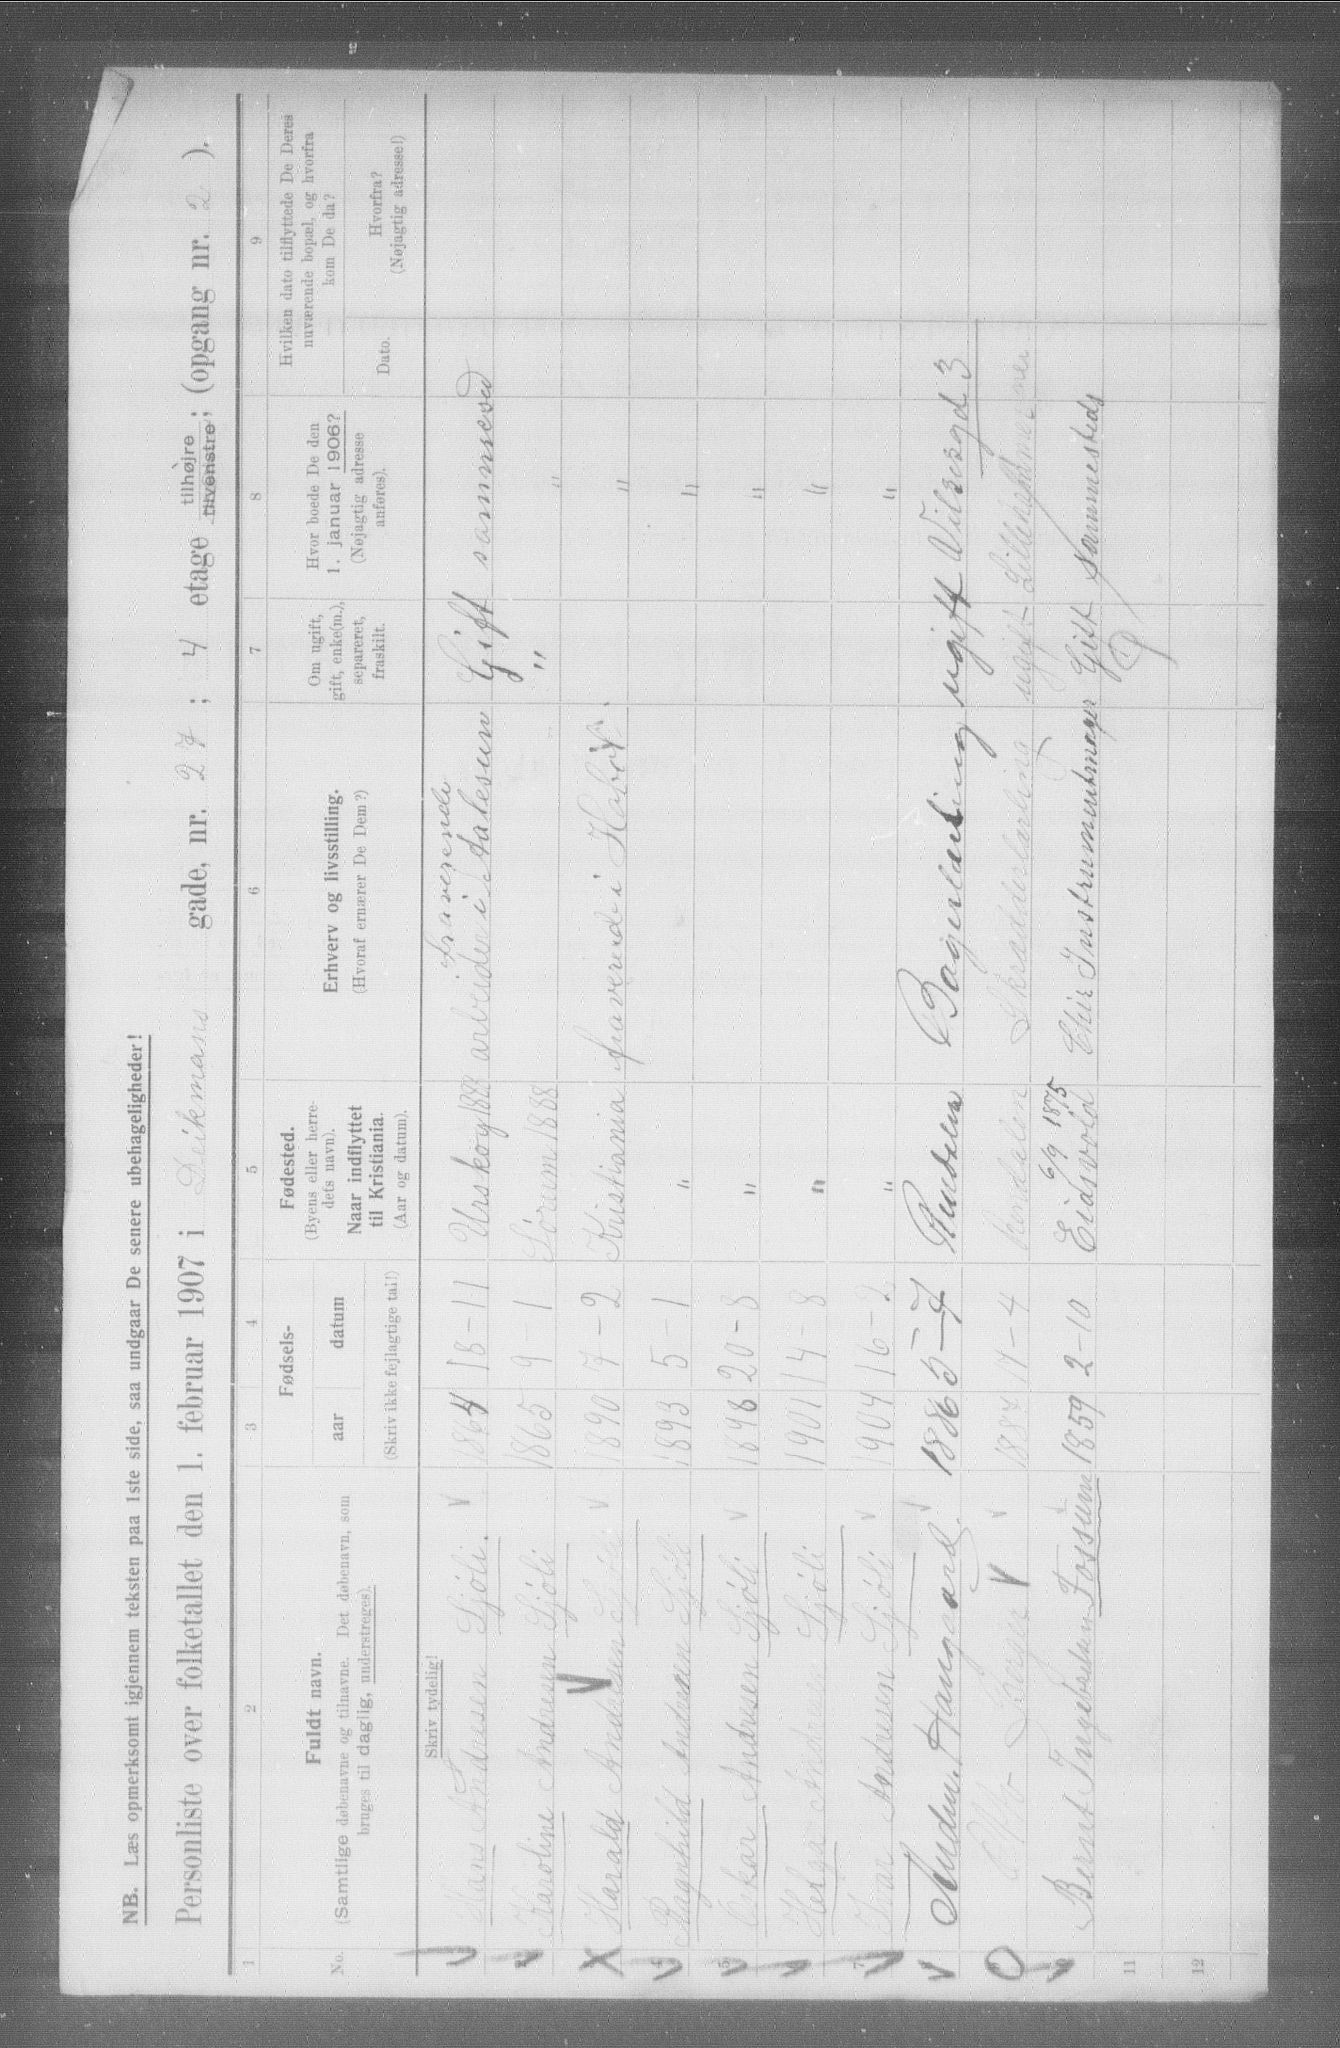 NB. Læs opmerksomt igjennem teksten paa 1ste side, saa undgaar De senere ubehageligheder!
Personliste over folketallet den 1. februar 1907 i Deikmans gade, nr. 27 ; 4 etage tilhøjre tilvenstre; (opgang nr. 2 ).
1 2 3 4 5 6 7 8 9
No.
Fuldt navn.
(Samtlige døbenavne og tilnavne. Det døbenavn, som
bruges til daglig, understreges).
Fødsels-
aar datum
(Skriv ikke fejlagtige tal!)
Fødested.
(Byens eller herre-
dets navn).
Naar indflyttet
til Kristiania.
(Aar og datum).
Erhverv og livsstilling.
(Hvoraf ernærer De Dem?)
Om ugift,
gift, enke(m.),
separeret,
fraskilt.
Hvor boede De den
1. januar 1906?
(Nøjagtig adresse
anføres).
Hvilken dato tilflyttede De Deres
nuværende bopæl, og hvorfra
kom De da?
Dato.
Hvorfra?
(Nøjagtig adresse!)
Skriv tydelig!
Hans Andresen Sjøli. 1864 18-11 Urskog 1888 fraverende arbeider i Aalesun Gift sammested
Karoline Andresen Sjøli 1865 9-1 Sörum 1888 " "
Harald Andresen Sjöli 1890 7-2 Kristiania fraverende i "
4 Ragnhild Andresen Sjöli 1893 5-1 " "
5 Oskar Andresen Sjöli 1898 20-8 " "
Helga Andresen Sjöli 1901 14-8 " "
7 Ivar Andresen Sjöli 1904 16-2 " "
Haugaard. 1886 5-7 Bagerlærling ugift 3
1887 17-4 Skrædderlærling ugift
Bernt Ingebretsen Fossum 1859 2-10 Eidsvold 6/9 1875 Chir Instrumentmager Gift Sammesteds
11
12